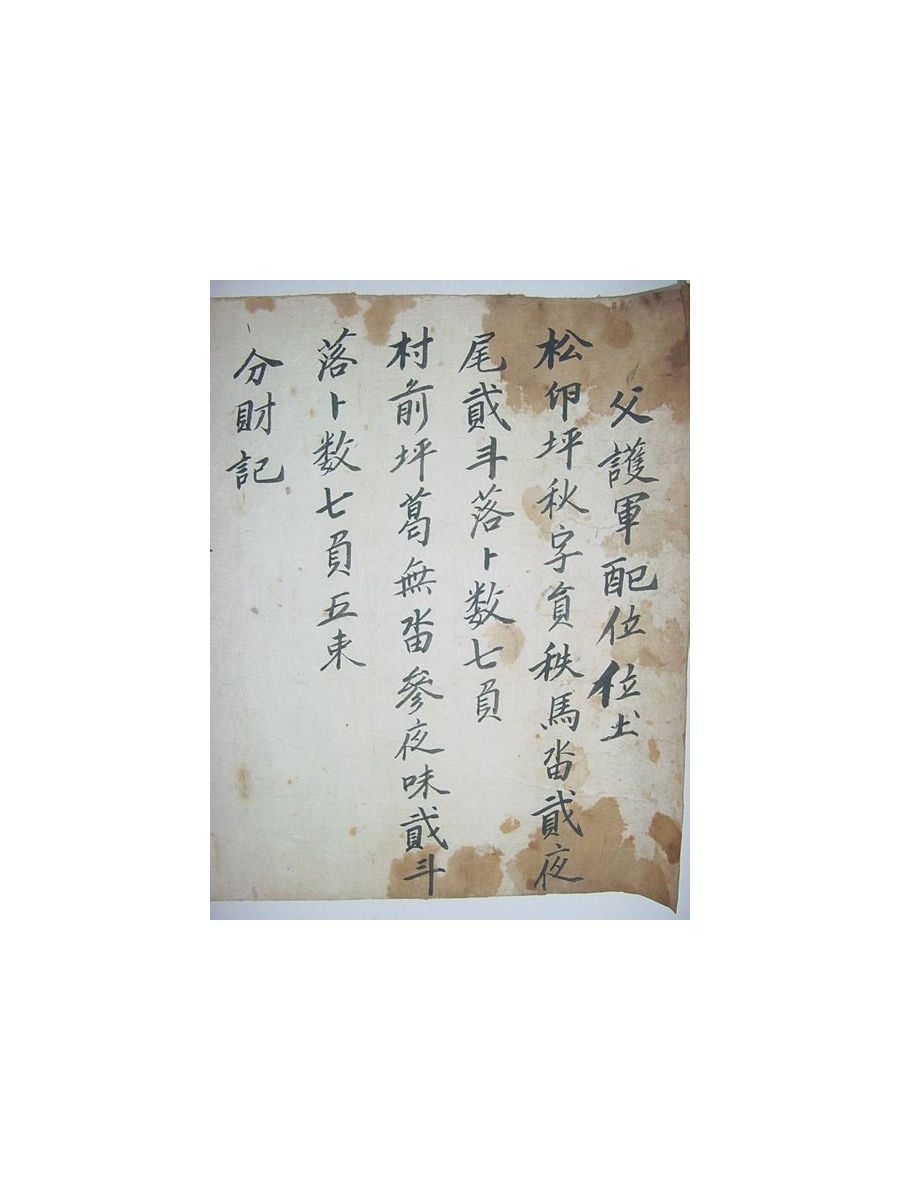 父護軍配位位土
松卯坪秋字負秩馬畓貳夜
尾貳斗落卜数七負
村前坪葛無畓參夜味貳斗
落卜数七負五束
分財記